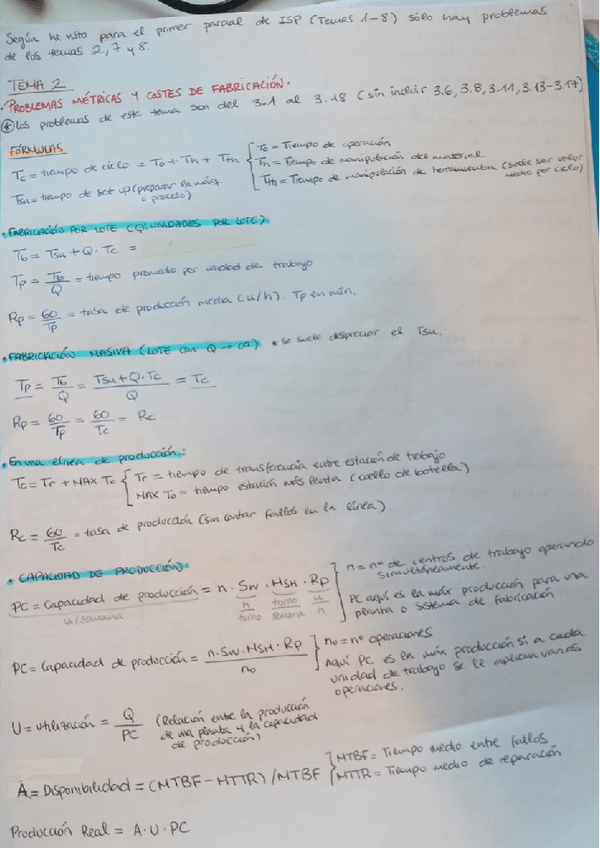 Según he visto para el primer parcial de ISP (Temas 1-8) sólo hay problemas
de los temas 2, 7 y 8.
TEMA 2
• PROBLEMAS MÉTRICAS Y COSTES DE FABRICACIÓN.
* Los problemas de este tema son del 3.1 al 3.18 (sin incluir 3.6, 3.8, 3.11, 3.13-3.17)
FÓRMULAS
Tc = tiempo de ciclo = To + Th + Tth { To = Tiempo de operación
Th = Tiempo de manipulación del material
Tth = Tiempo de manipulación de herramienta (suele ser valor medio por ciclo)
Tsu = tiempo de set up (preparar la máq. o proceso)
• FABRICACIÓN POR LOTE (Q UNIDADES POR LOTE)
Tb = Tsu + Q · Tc =
Tp = Tb/Q = tiempo promedio por unidad de trabajo
Rp = 60/Tp = tasa de producción media (u/h). Tp en min.
• FABRICACIÓN MASIVA (LOTE con Q → ∞) * se suele despreciar el Tsu.
Tp = Tb/Q = (Tsu + Q · Tc)/Q = Tc
Rp = 60/Tp = 60/Tc = Rc
• En una línea de producción:
Tc = Tr + MAX To { Tr = tiempo de transferencia entre estación de trabajo
MAX To = tiempo estación más lenta (cuello de botella)
Rc = 60/Tc = tasa de producción (sin contar fallos en la línea)
• CAPACIDAD DE PRODUCCIÓN
PC = Capacidad de producción = n · Sw · HSH · Rp } n = nº de centros de trabajo operando simultáneamente.
u/semana h/turno turno/semana u/h
PC aquí es la máx producción para una planta o sistema de fabricación
PC = Capacidad de producción = n · Sw · HSH · Rp / no } no = nº operaciones
Aquí PC es la máx producción si a cada unidad de trabajo se le aplican varias operaciones.
U = utilización = Q/PC (Relación entre la producción de una planta y la capacidad de producción)
A = Disponibilidad = (MTBF - MTTR) / MTBF } MTBF = Tiempo medio entre fallos
MTTR = Tiempo medio de reparación
Producción Real = A · U · PC